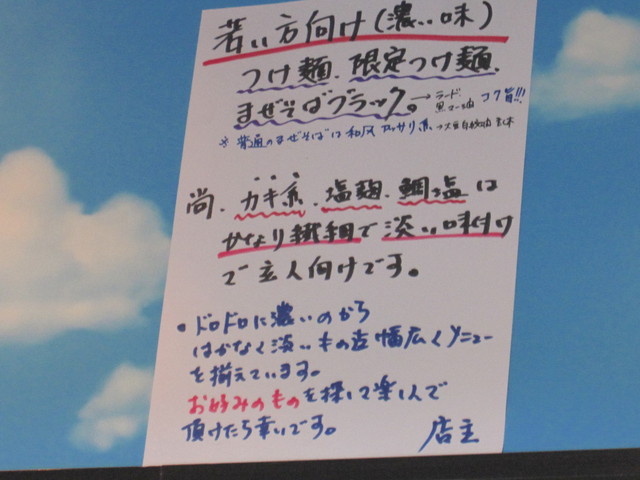 若い方向け(濃い味)
つけ麺、限定つけ麺、
まぜそばブラック。→ラード、黒マー油 コク旨!!!
※普通のまぜそばは和風アッサリ系
尚、カキ系、塩麹、鯛塩は
かなり繊細で淡い味付け
で玄人向けです。
●ドロドロに濃いのから
はかなく淡いもの迄幅広くメニュー
を揃えています。
お好みのものを探して楽しんで
頂けたら幸いです。 店主